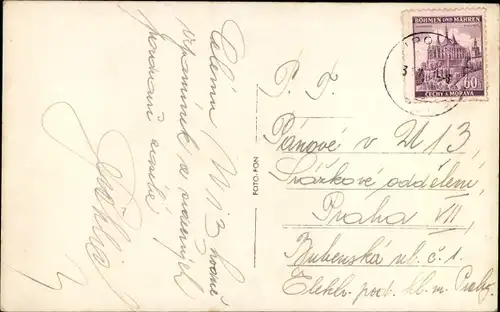 Celému U 13 hodně
vzpomínek a srdečných
pozdravů zasílá
FOTO-FON
BÖHMEN UND MÄHREN
ČECHY A MORAVA
60
P. T.
Pánové v U 13
Srážkové oddělení,
Praha VII,
Bubenská ul. č. 1.
Elektr. pod. hl. m. Prahy.